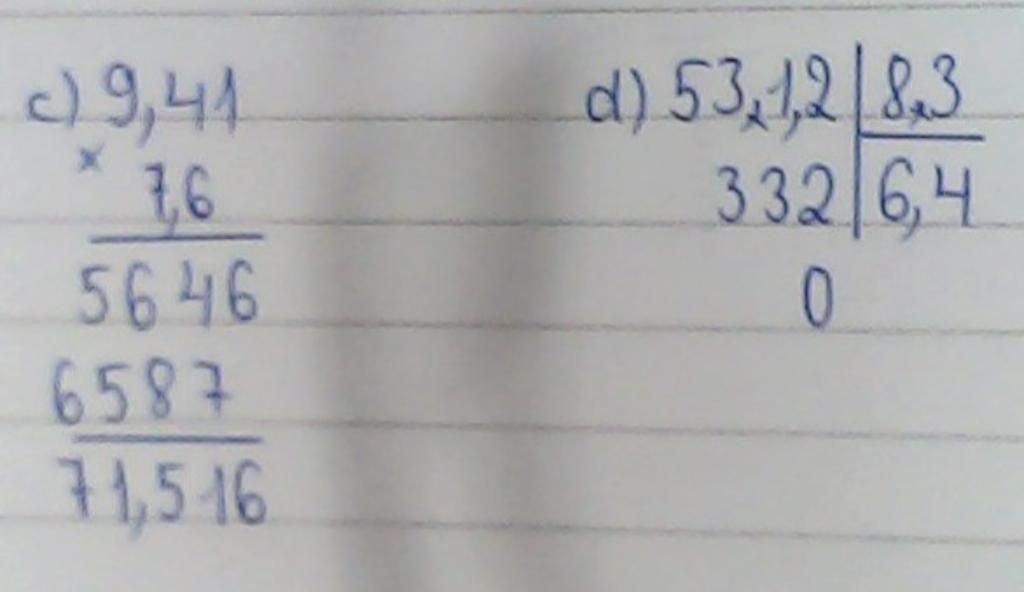 c) 9,41
x 7,6
5646
6587
71,516
d) 53,1,2 | 8,3
332 | 6,4
0